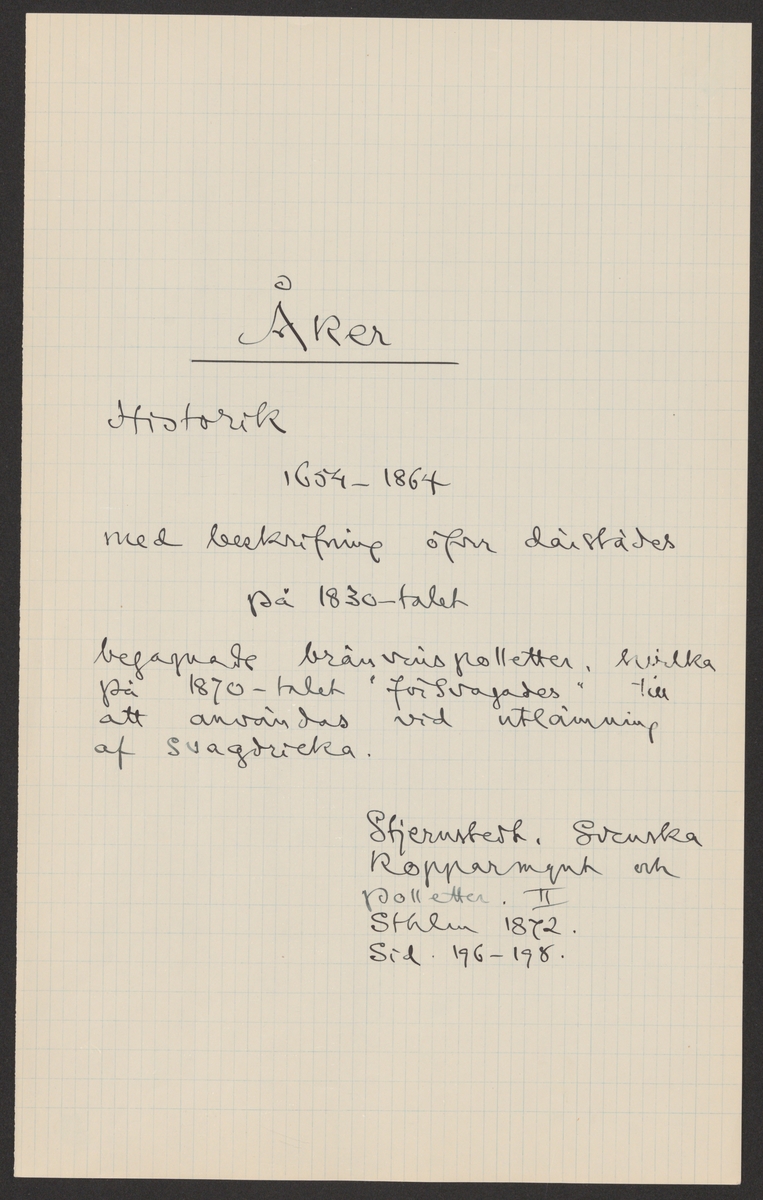 Åker
Historik
1654-1864
med beskrifning öfver därstädes
på 1830-talet
begagnade brännvinspolletter, hvilka
på 1870-talet "försvagades" till
att användas vid utlämning
af svagdricka.
Stjernstedt. Svenska
Kopparmynt och
polletter. II
Sthlm 1872.
Sid. 196-198.